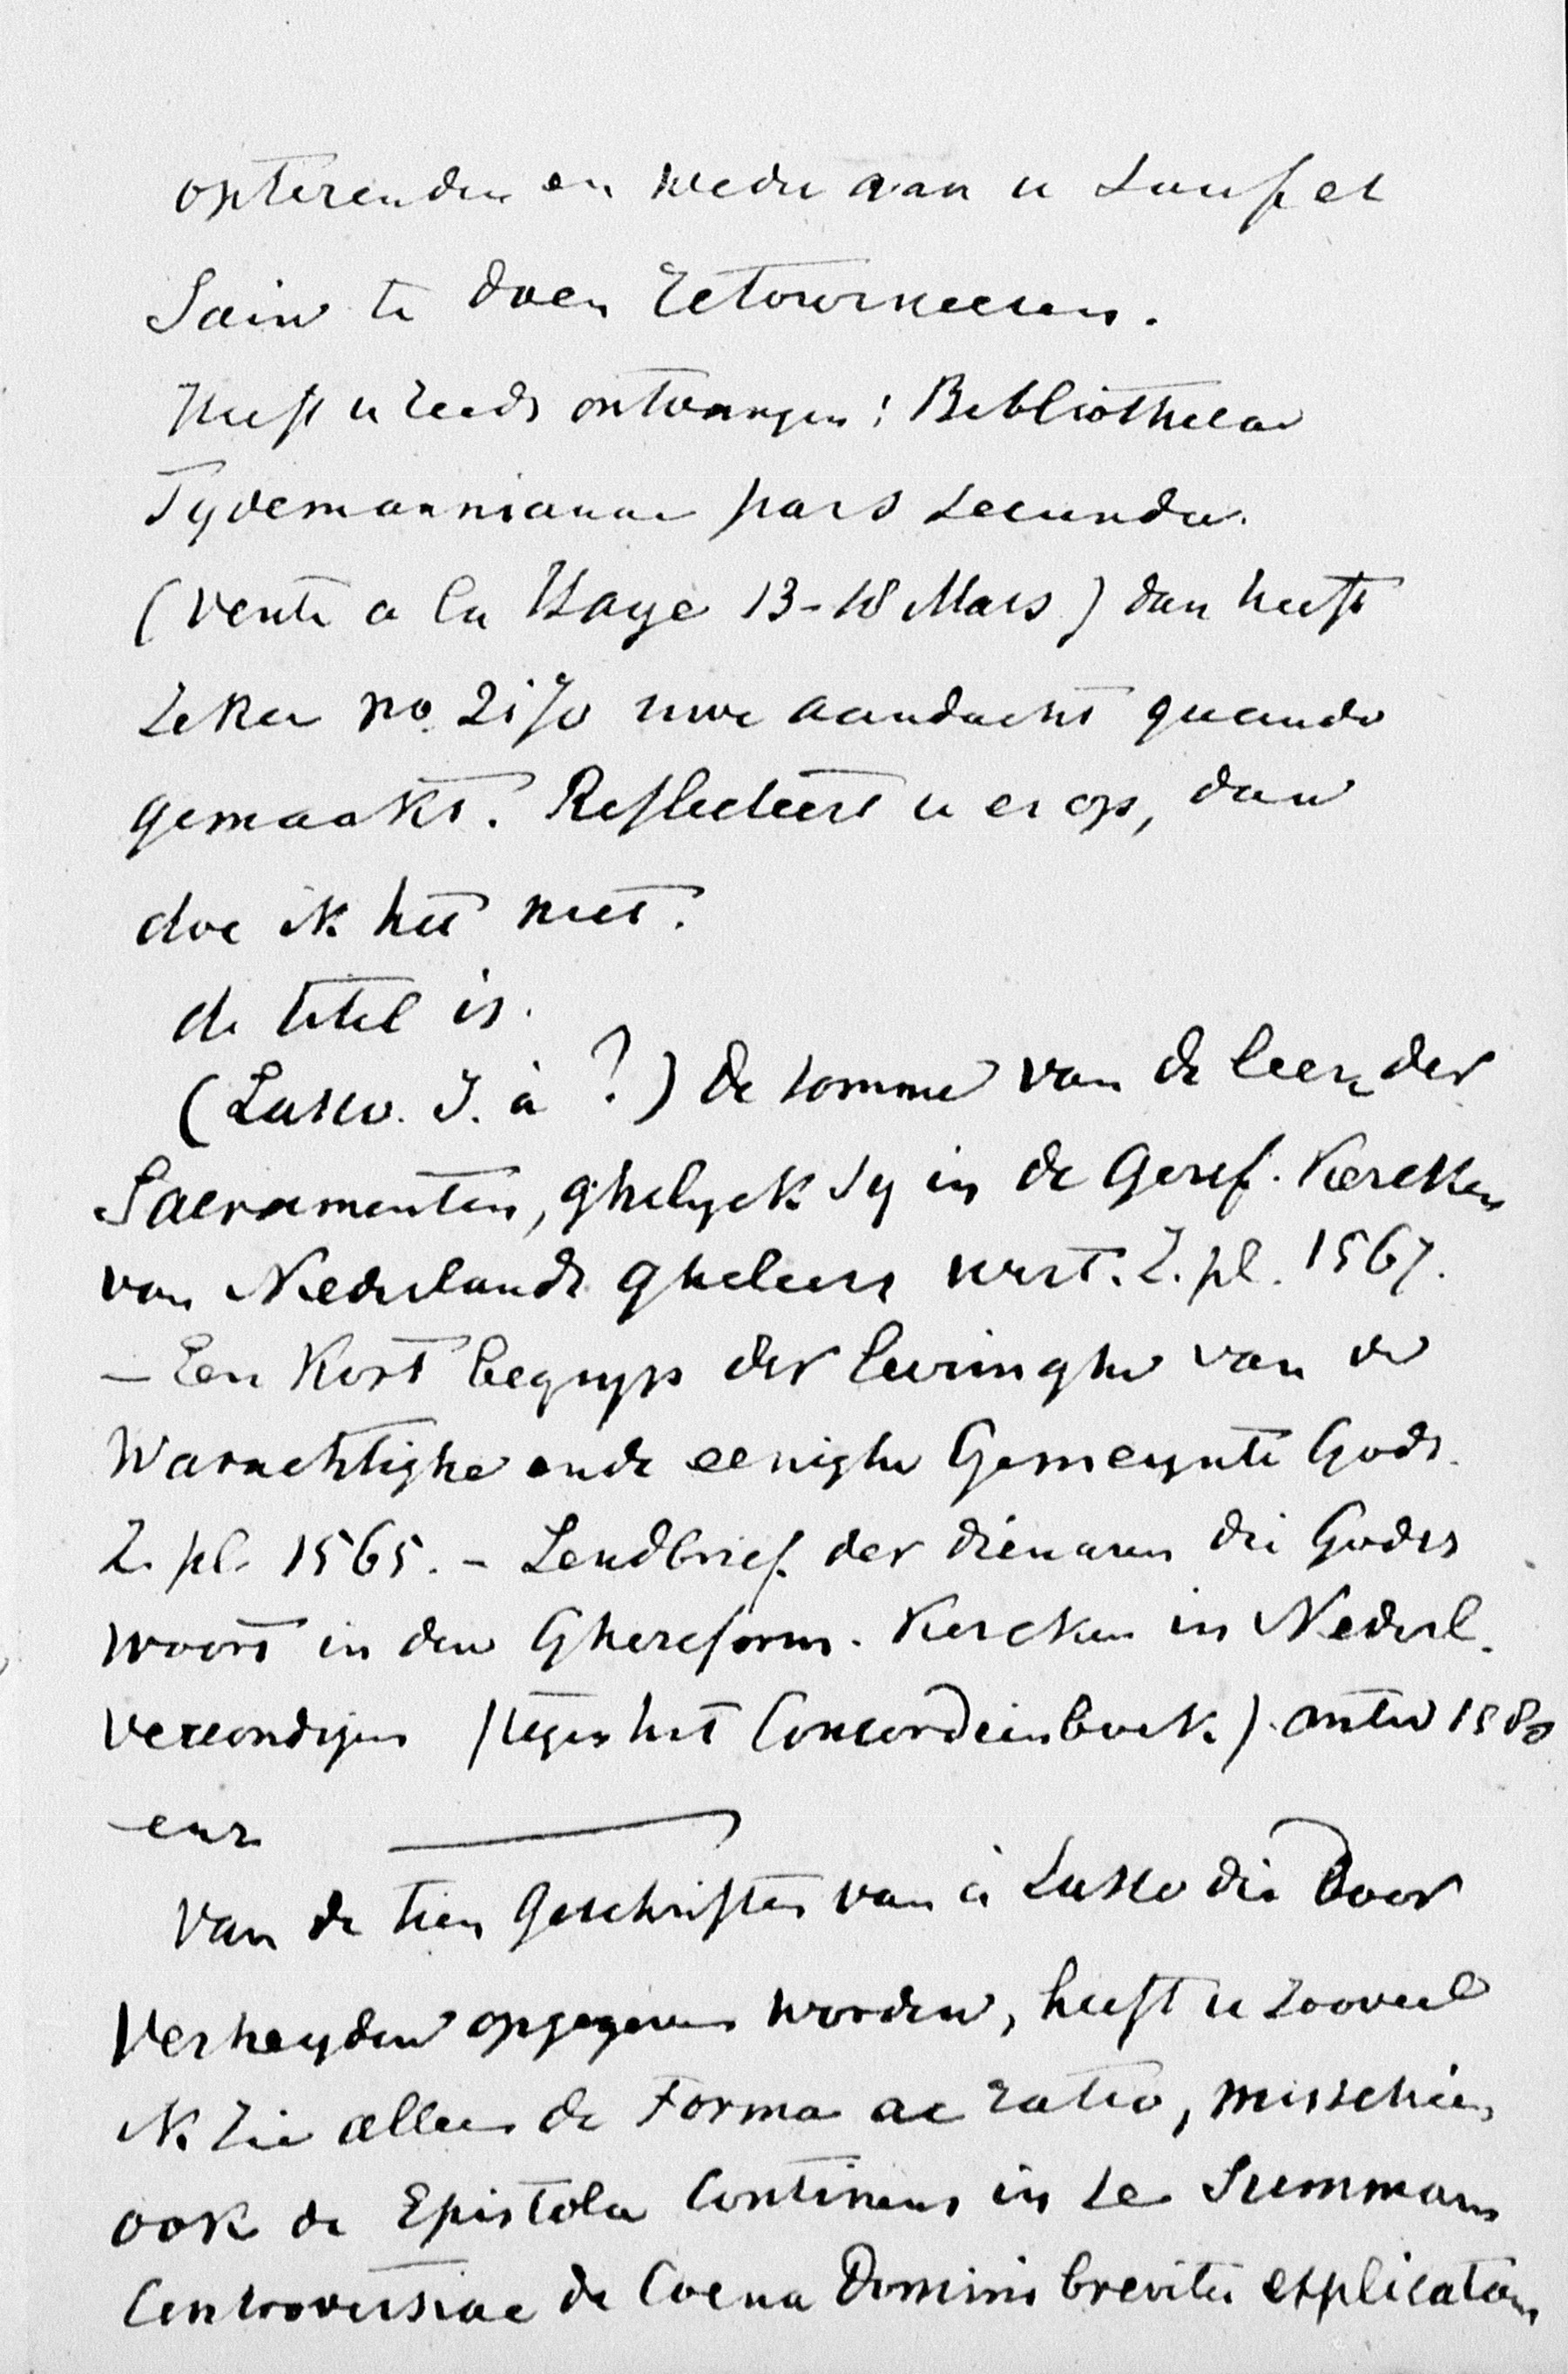 opterenden en weder aan u sauf et
Sain te doen retourneeren.
Heeft u reeds ontvangen: Bibliotheca
Tydemanniana pars secunda.
(vente a la Haye 13-18 Mars) dan heeft
zeker no. 2170 uwe aandacht gaande
gemaakt. Reflecteert u er op, dan
doe ik het niet.
de titel is.
(Lasko. J. à ?) De somme van de leere der
Sacramenten, ghelyck sy in de Geref. Kercken
van Nederlandt gheleert wert. Z. pl. 1567.
– Een Kort begryp der leeringhe van de
Warachtighe ende eenighe Gemeynte Gods.
Z. pl. 1565. – Sendbrief der dienaren die Godes
woort in den Ghereform. Kercken in Nederl.
vercondigen (tegen het Concordienboek). Antw 1580
enz
van de tien Geschriften van à Lasko die door
Verheyden opgegeven worden, heeft u zooveel
ik zie alleen de Forma ac ratio, misschien
ook de Epistola Continens in se Summam
Controversiae de Coena Domini breviter explicatam